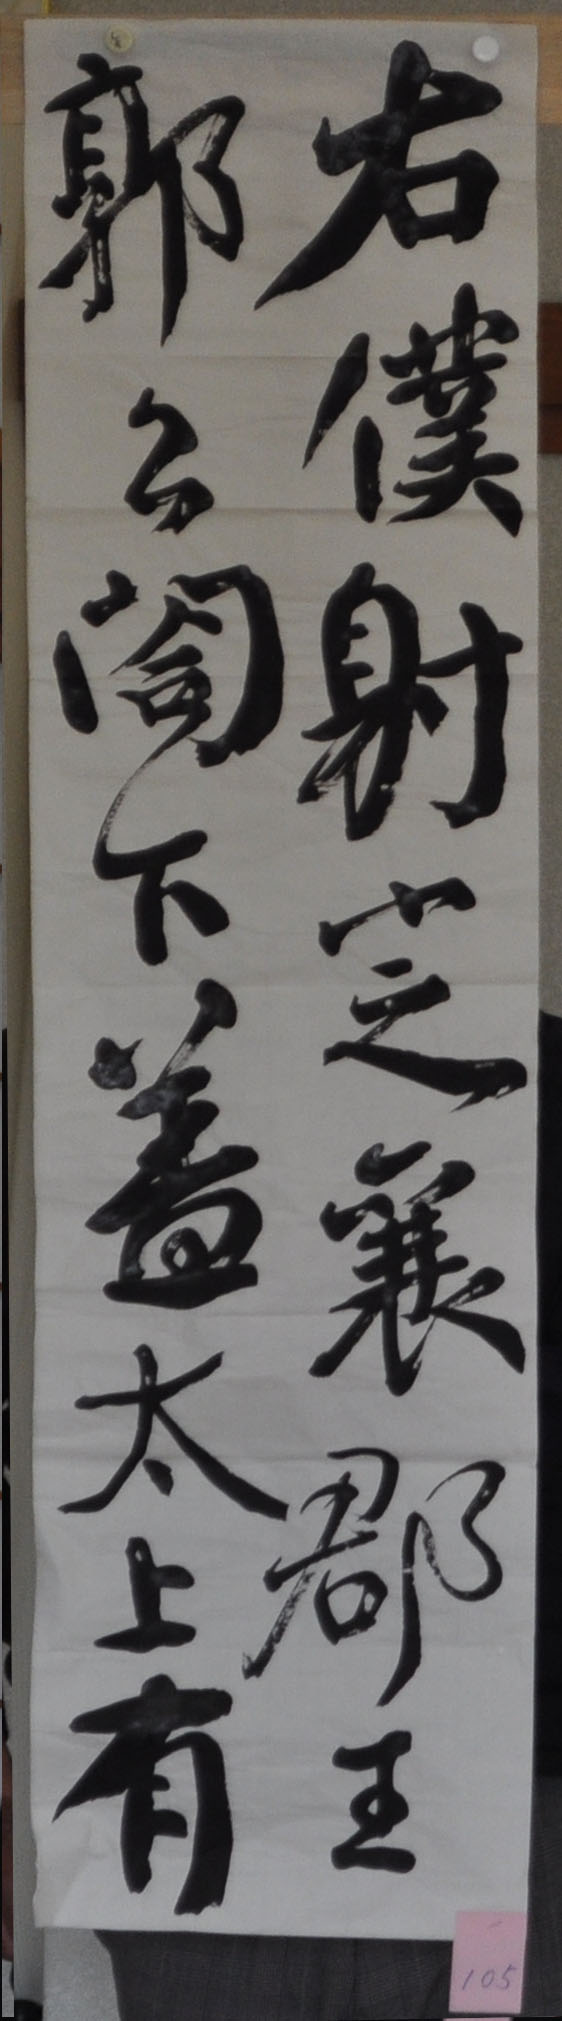 右僕射定襄郡王
郭公閤下蓋太上有
105